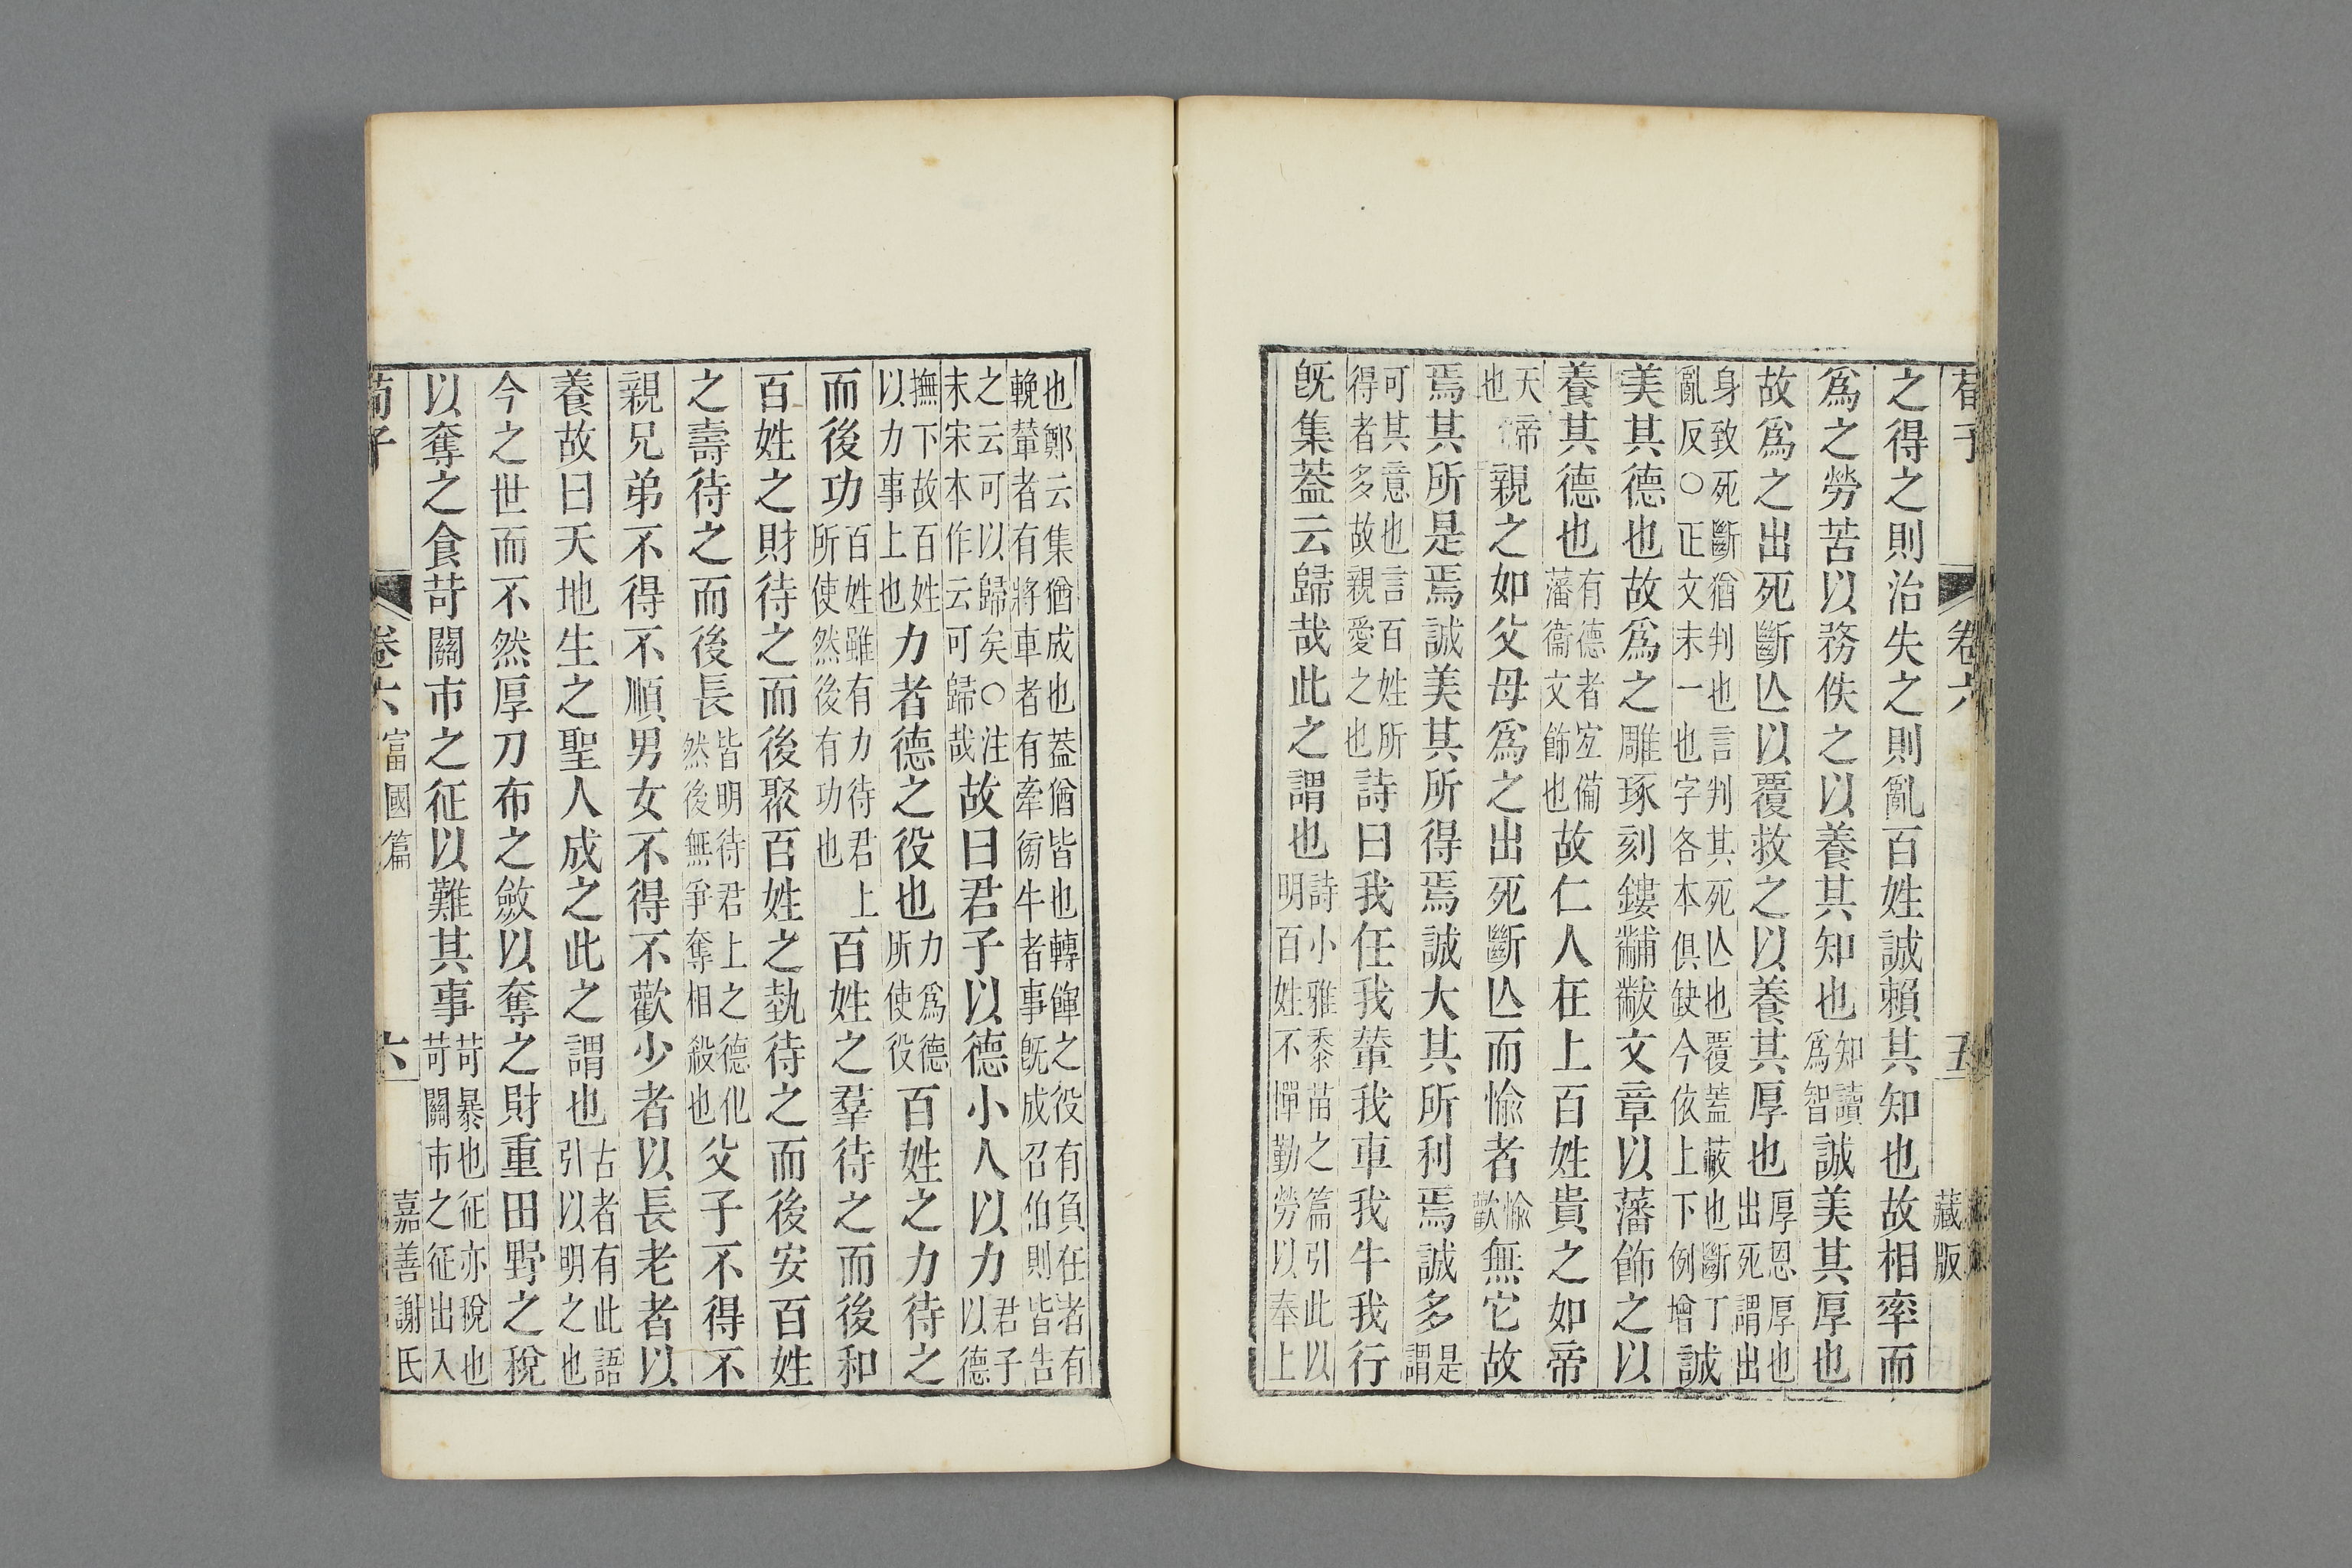 荀子 卷六 五 藏版
之得之則治失之則亂百姓誠賴其知也故相率而
爲之勞苦以務佚之以養其知也知讀爲智誠美其厚也
故爲之出死斷亾以覆救之以養其厚也厚恩厚也出死謂出
身致死斷猶判也言判其死亾也覆蓋蔽也斷丁亂反○正文末一也字各本俱缺今依上下例增誠
美其德也故爲之雕琢刻鏤黼黻文章以藩飾之以
養其德也有德者宜備藩衞文飾也故仁人在上百姓貴之如帝
天帝也親之如父母爲之出死斷亾而愉者愉歡無它故
焉其所是焉誠美其所得焉誠大其所利焉誠多是謂
可其意也言百姓所得者多故親愛之也詩曰我任我輦我車我牛我行
旣集蓋云歸哉此之謂也詩小雅黍苗之篇引此以明百姓不憚勤勞以奉上
也鄭云集猶成也蓋猶皆也轉餫之役有負任者有輓輦者有將車者有牽徬牛者事旣成召伯則皆告
之云可以歸矣○注末宋本作云可歸哉故曰君子以德小人以力君子以德
撫下故百姓以力事上也力者德之役也力爲德所使役百姓之力待之
而後功百姓雖有力待君上所使然後有功也百姓之羣待之而後和
百姓之財待之而後聚百姓之埶待之而後安百姓
之壽待之而後長皆明待君上之德化然後無爭奪相殺也父子不得不
親兄弟不得不順男女不得不歡少者以長老者以
養故曰天地生之聖人成之此之謂也古者有此語引以明之也
今之世而不然厚刀布之斂以奪之財重田野之稅
以奪之食苛關市之征以難其事苛暴也征亦稅也苛關市之征出入
荀子 卷六 富國篇 六 嘉善謝氏